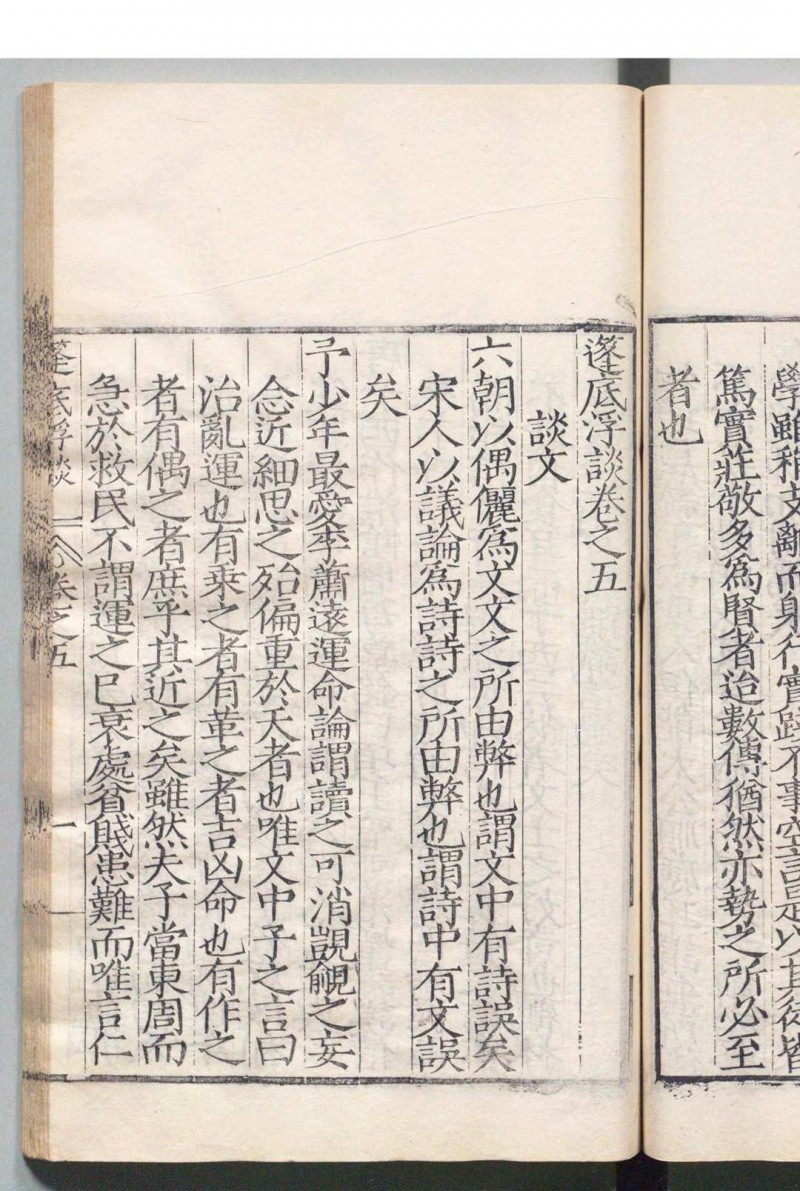 學雖稍支離而躬行實踐不事空言是以其徒皆
篤實莊敬多為賢者迨數傳猶然亦勢之所必至
者也
篷底浮談卷之五
談文
六朝以偶儷為文文之所由弊也謂文中有詩誤矣
宋人以議論為詩詩之所由弊也謂詩中有文誤
矣
予少年最愛李蕭遠運命論謂讀之可消覬覦之妄
念近細思之殆偏重於天者也唯文中子之言曰
治亂運也有乗之者有革之者吉凶命也有作之
者有偶之者庶乎其近之矣雖然夫子當東周而
急於救民不謂運之已衰處貧賤患難而唯言仁
篷底浮談 卷之五 一